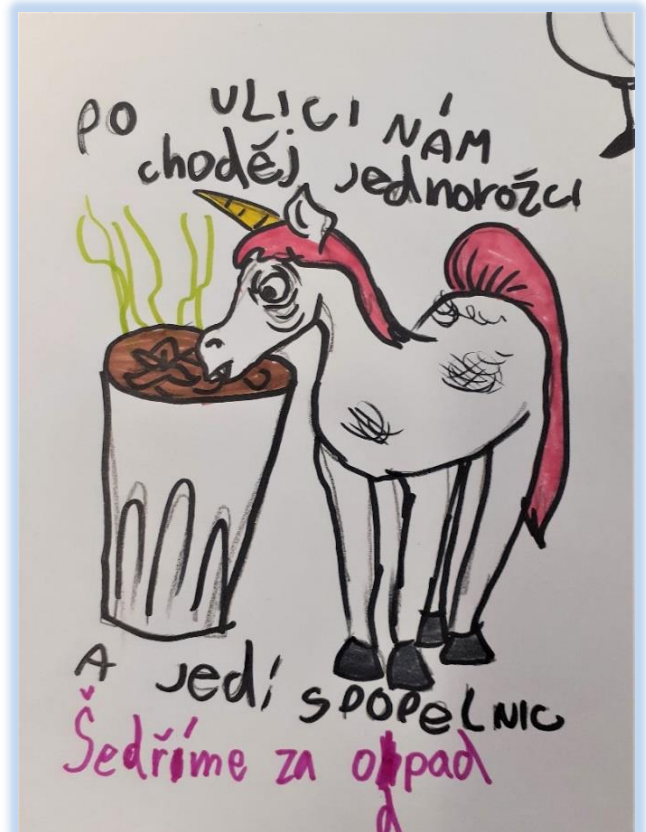 PO ULICI NÁM
choděj jednorožci
A jedí SPOPELNIC
Šedříme za odpad